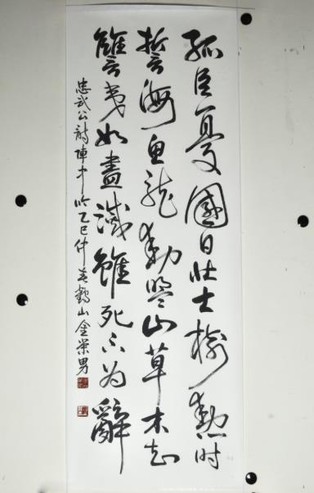 孤臣憂國日壯士樹勳時
誓海魚龍動盟山草木知
讐夷如盡滅雖死不為辭
忠武公詩陣中吟乙巳仲春鶴山金榮男